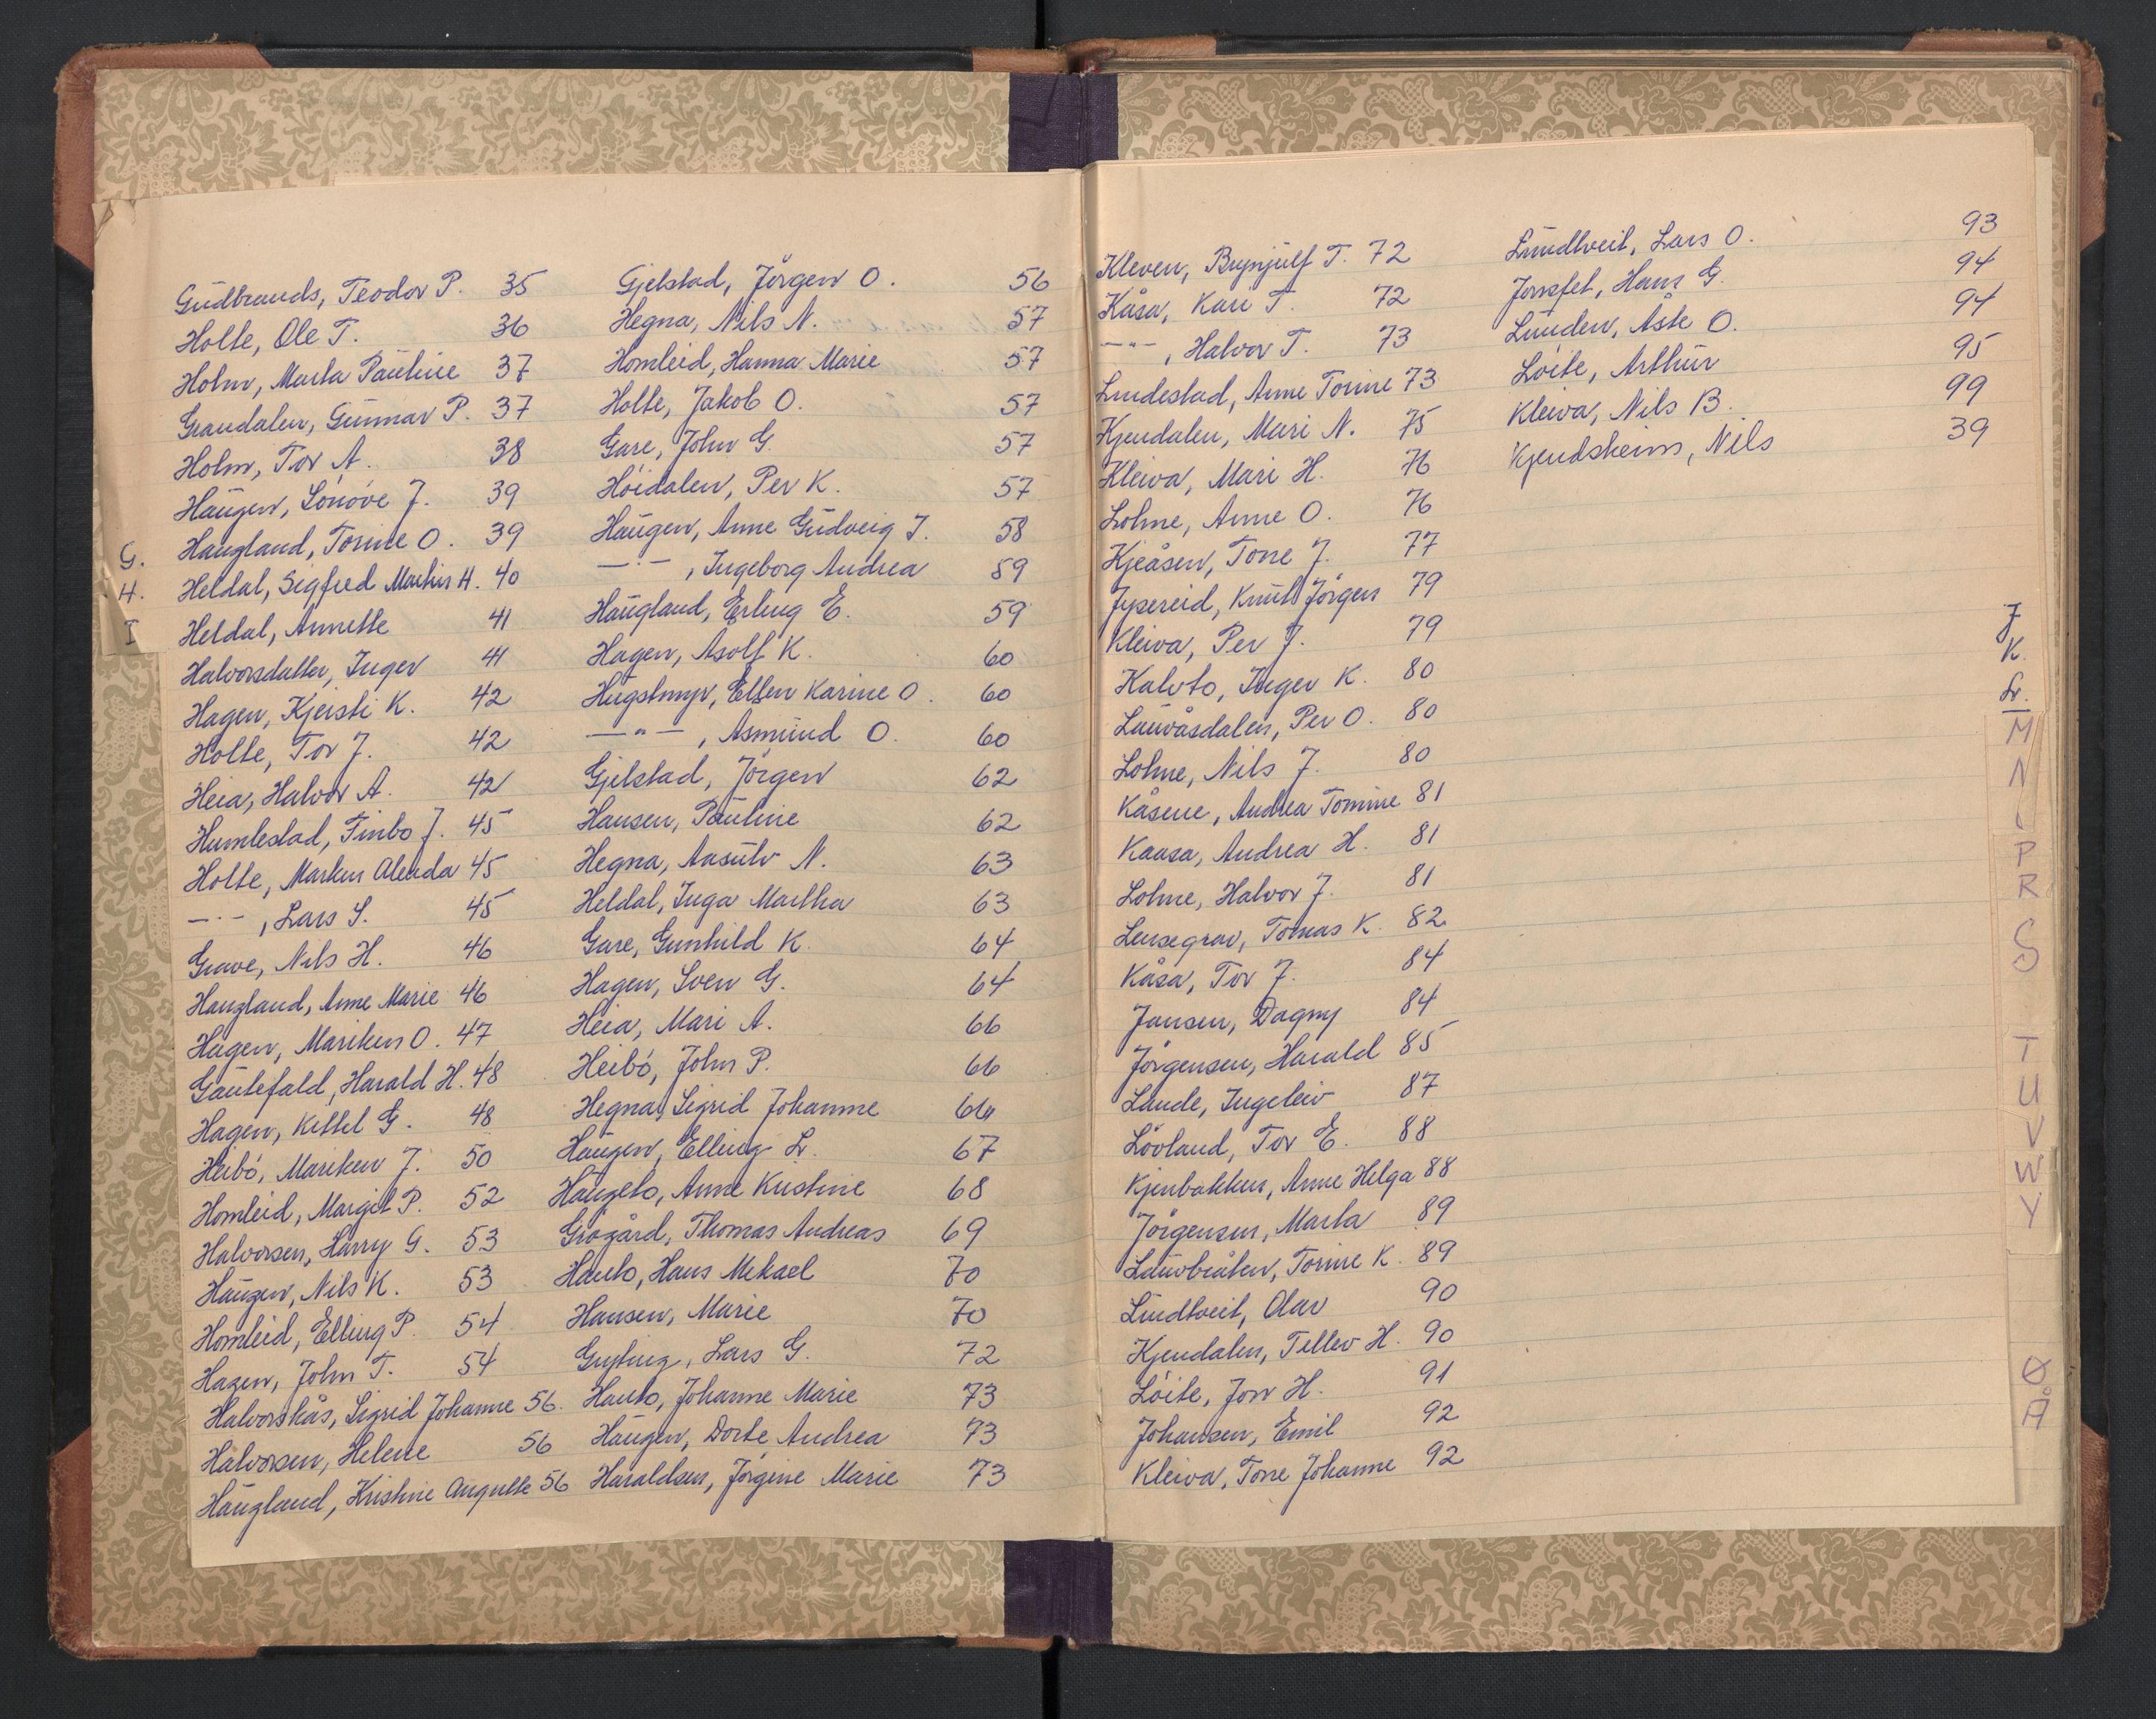 Gudbrands, Teodor P. 35
Holte, Ole T. 36
Holm, Marta Pauline 37
Grandalen, Gunnar P. 37
Holm, Tor A. 38
Haugen, Sönöve J. 39
Haugland, Torine O. 39
Heldal, Sigfred Martin H. 40
Heldal, Annette 41
Halvorsdatter, Inger 41
Hagen, Kjersti K. 42
Holte, Tor J. 42
Heia, Halvor A. 42
Humlestad, Finbo J. 45
Holte, Markus Alenda 45
—"—, Lars S. 45
Grave, Nils H. 46
Haugland, Anne Marie 46
Hagen, Mariken O. 47
Gautefald, Harald H. 48
Hagen, Kittel G. 48
Heibö, Mariken J. 50
Homleid, Margit P. 52
Halvorsen, Harry G. 53
Haugen, Nils K. 53
Homleid, Elling P. 54
Hagen, John T. 54
Halvorskås, Sigrid Johanne 56.
Halvorsen, Helene 56
Haugland, Kristine Augutte 56
G.
H.
I
Gjelstad, Jörgen O. 56
Hegna, Nils N. 57
Homleid, Hanna Marie 57
Holte, Jakob O. 57
Gare, John G. 57
Höidalen, Per K. 57
Haugen, Anne Gudveig J. 58
—"—, Ingeborg Andrea 59
Haugland, Erling E. 59
Hagen, Asolf K. 60
Hugstmyr, Ellen Karine O. 60
—"—, Asmund O. 60
Gjelstad, Jörgen 62
Hansen, Pauline 62
Hegna, Aasulv N. 63
Heldal, Inga Martha 63
Gare, Gunhild K. 64
Hagen, Sven G. 64
Heia, Mari A. 66
Heibö, John P. 66
Hegna, Sigrid Johanne 66
Haugen, Elling L. 67
Haugeto, Anne Kristine 68
Grögård, Thomas Andreas 69
Hauto, Hans Mikael 70
Hansen, Marie 70
Gryting, Lars G. 72
Hauto, Johanne Marie 73
Haugen, Dorte Andrea 73
Haraldsen, Jörgine Marie 73
Kleven, Brynjulf T. 72
Kåsa, Kari T. 72
—"—, Halvor T. 73
Lindestad, Anne Torine 73
Kjendalen, Mari N. 75
Kleiva, Mari H. 76
Lohne, Anne O. 76
Kjeåsen, Tone J. 77
Jypereid, Knut Jörgen 79
Kleiva, Per J. 79
Kalvto, Inger K. 80
Lauvåsdalen, Per O. 80
Lohne, Nils J. 80
Kåsene, Andrea Tomine 81
Kaasa, Andrea H. 81
Lohne, Halvor J. 81
Lensegrav, Tomas K. 82
Kåsa, Tor J. 84
Jansen, Dagny 84
Jörgensen, Harald 85
Lande, Ingeleiv 87
Lövland, Tor E. 88
Kjenbakken, Anne Helga 88
Jörgensen, Marta 89
Lauvbråten, Torine K. 89
Lindtveit, Olav 90
Kjendalen, Tellev H. 90
Löite, Jon H. 91
Johansen, Emil 92
Kleiva, Tone Johanne 92
Lundtveit, Lars O. 93
Jonsfet, Hans G. 94
Lunden, Åste O. 94
Löite, Arthur 95
Kleiva, Nils B. 99
Kjendsheim, Nils 39
J
K.
L.
M
N
P
R
S
T
U
V
W
Y
Ø
Å